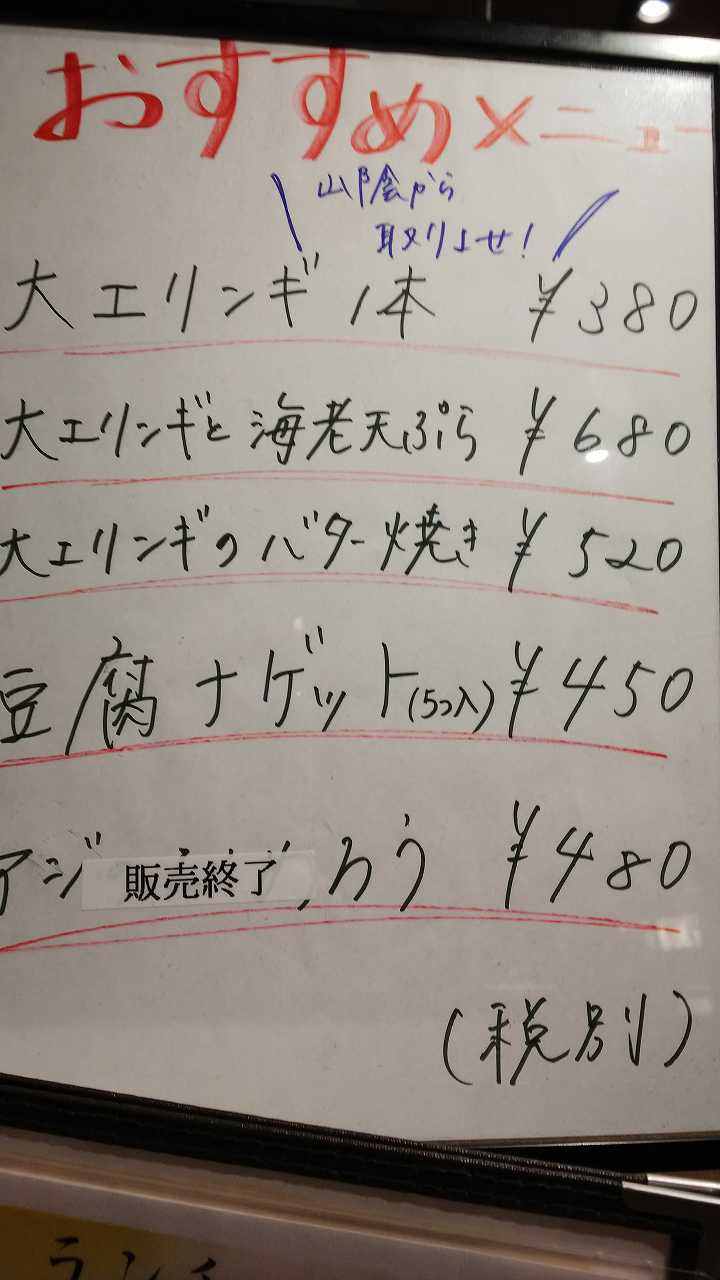 おすすめメニュー
山陰から
取りよせ!
大エリンギ 1本 ¥380
大エリンギと海老天ぷら ¥680
大エリンギのバター焼き ¥520
豆腐ナゲット(5つ入) ¥450
アジ 販売終了 ろう ¥480
(税別)
ランチ